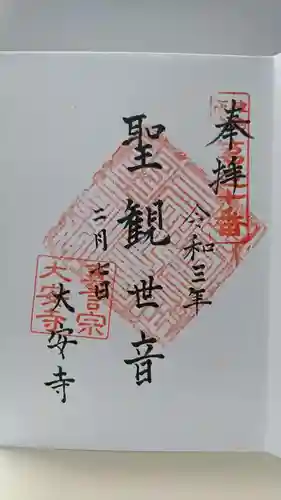 奉拝
令和三年
聖観世音
二月七日
大安寺
真言宗
大安寺